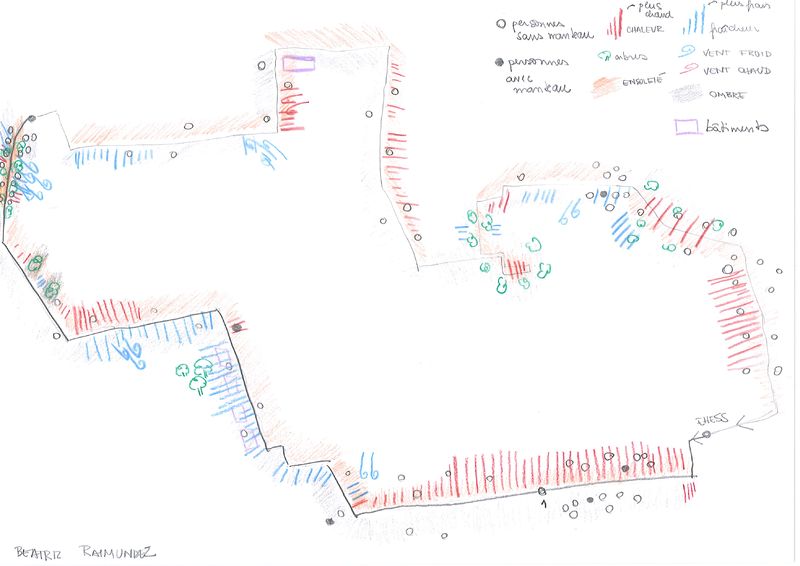 personnes
sans manteau
personnes
avec
manteau
plus
chaud
CHALEUR
arbres
ENSOLEIÉ
plus frais
fraîcheur
VENT FROID
VENT CHAUD
OMBRE
bâtiments
EHESS
1
BEATRIZ RAIMUNDEZ